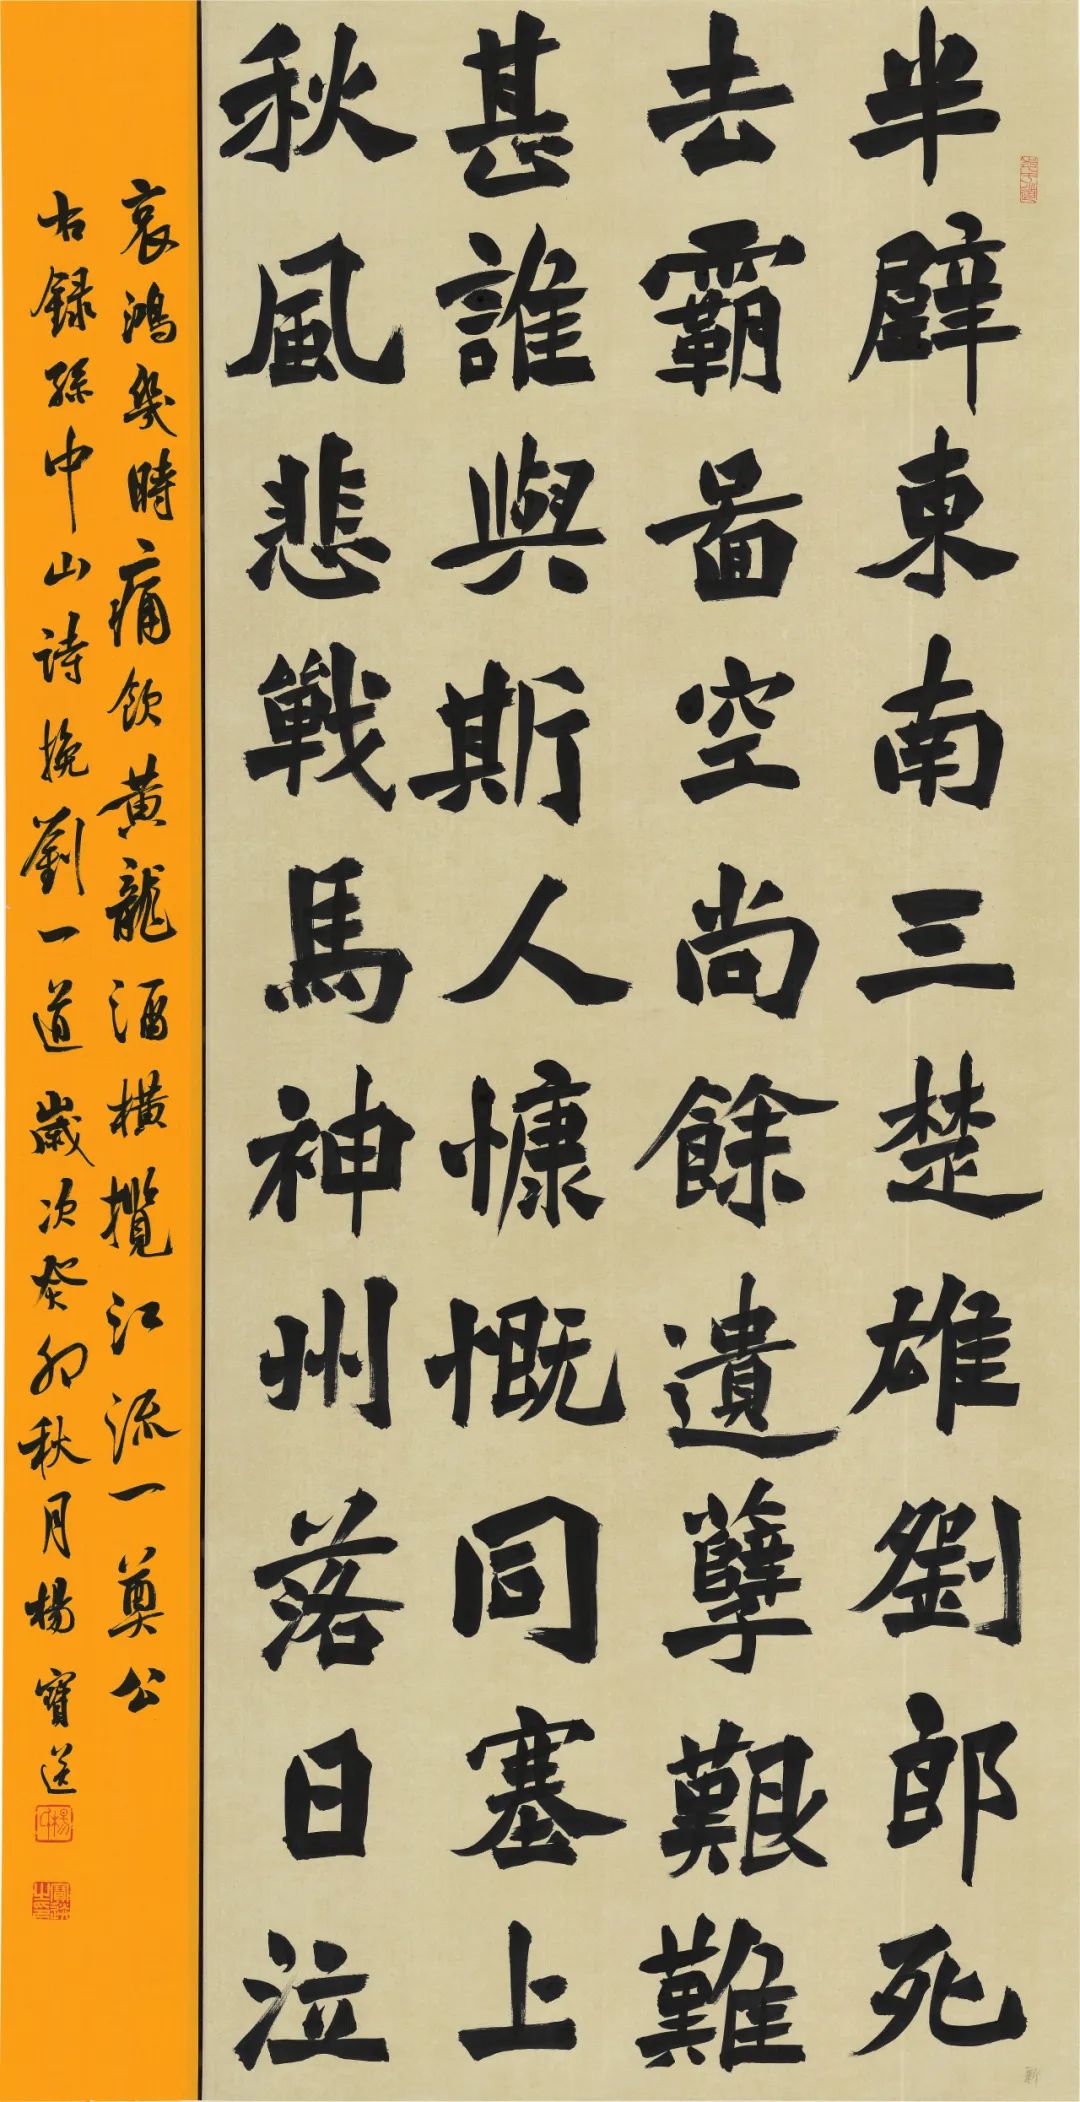 半壁東南三楚雄劉郎死
去霸啚空尚餘遺孽艱難
甚誰與斯人慷慨同塞上
秋風悲戰馬神州落日泣
哀鴻幾時痛飲黄龍酒橫攬江流一奠公
右録孫中山詩挽劉一道歲次癸卯秋月楊寶送